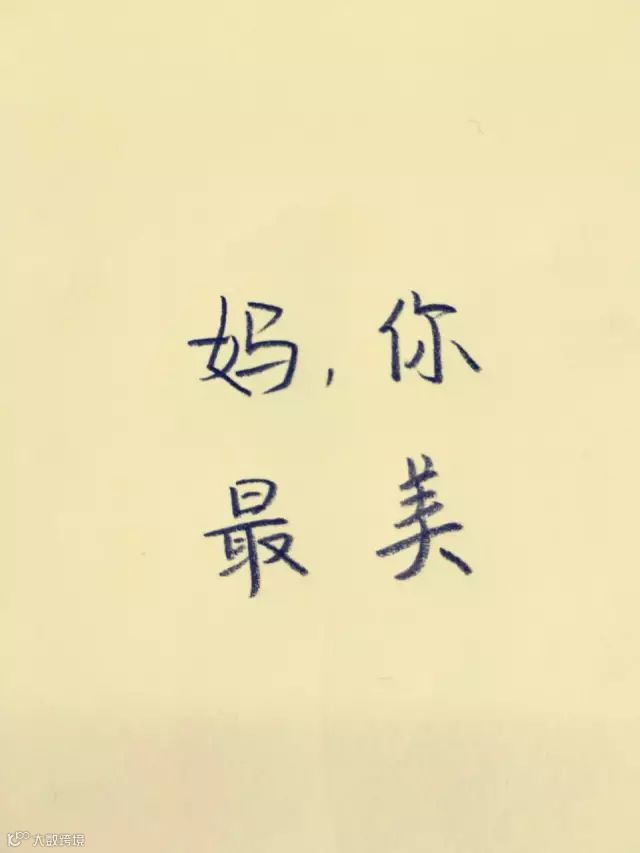 妈,你
最美
大数跨境